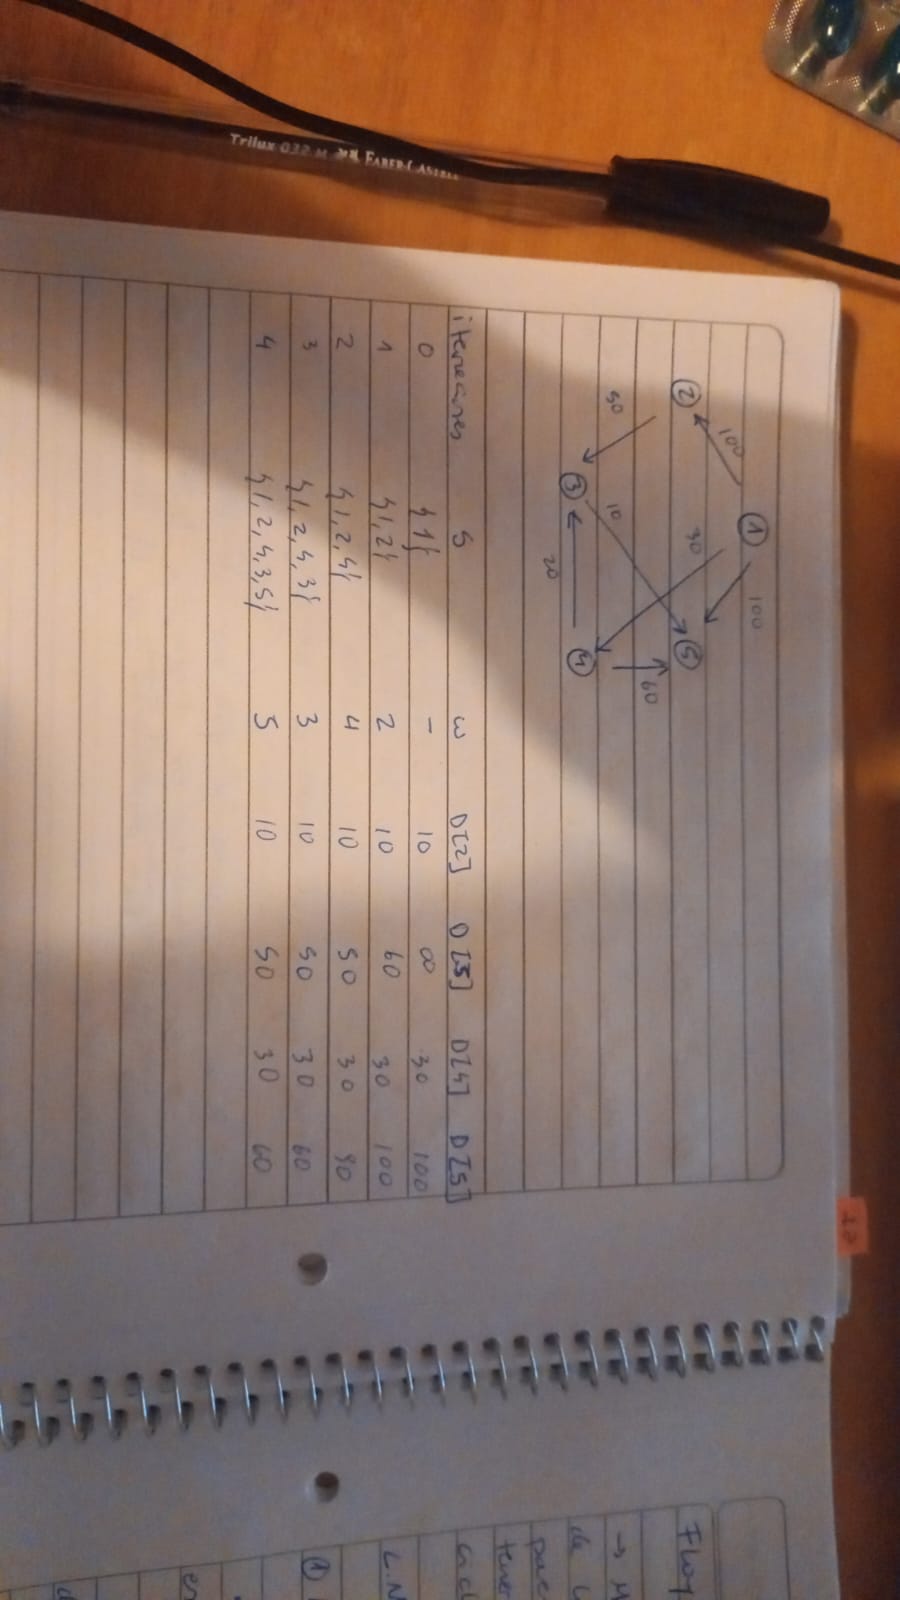 Trilux 032 M FABER-CASTELL
①
100
100
②
30
⑤
50
10
60
③
20
④
iteraciones S w D[2] D[3] D[4] D[5]
0 {1} - 10 ∞ 30 100
1 {1,2} 2 10 60 30 100
2 {1,2,4} 4 10 50 30 90
3 {1,2,4,3} 3 10 50 30 60
4 {1,2,4,3,5} 5 10 50 30 60
Floy
→ M
de
tener
①